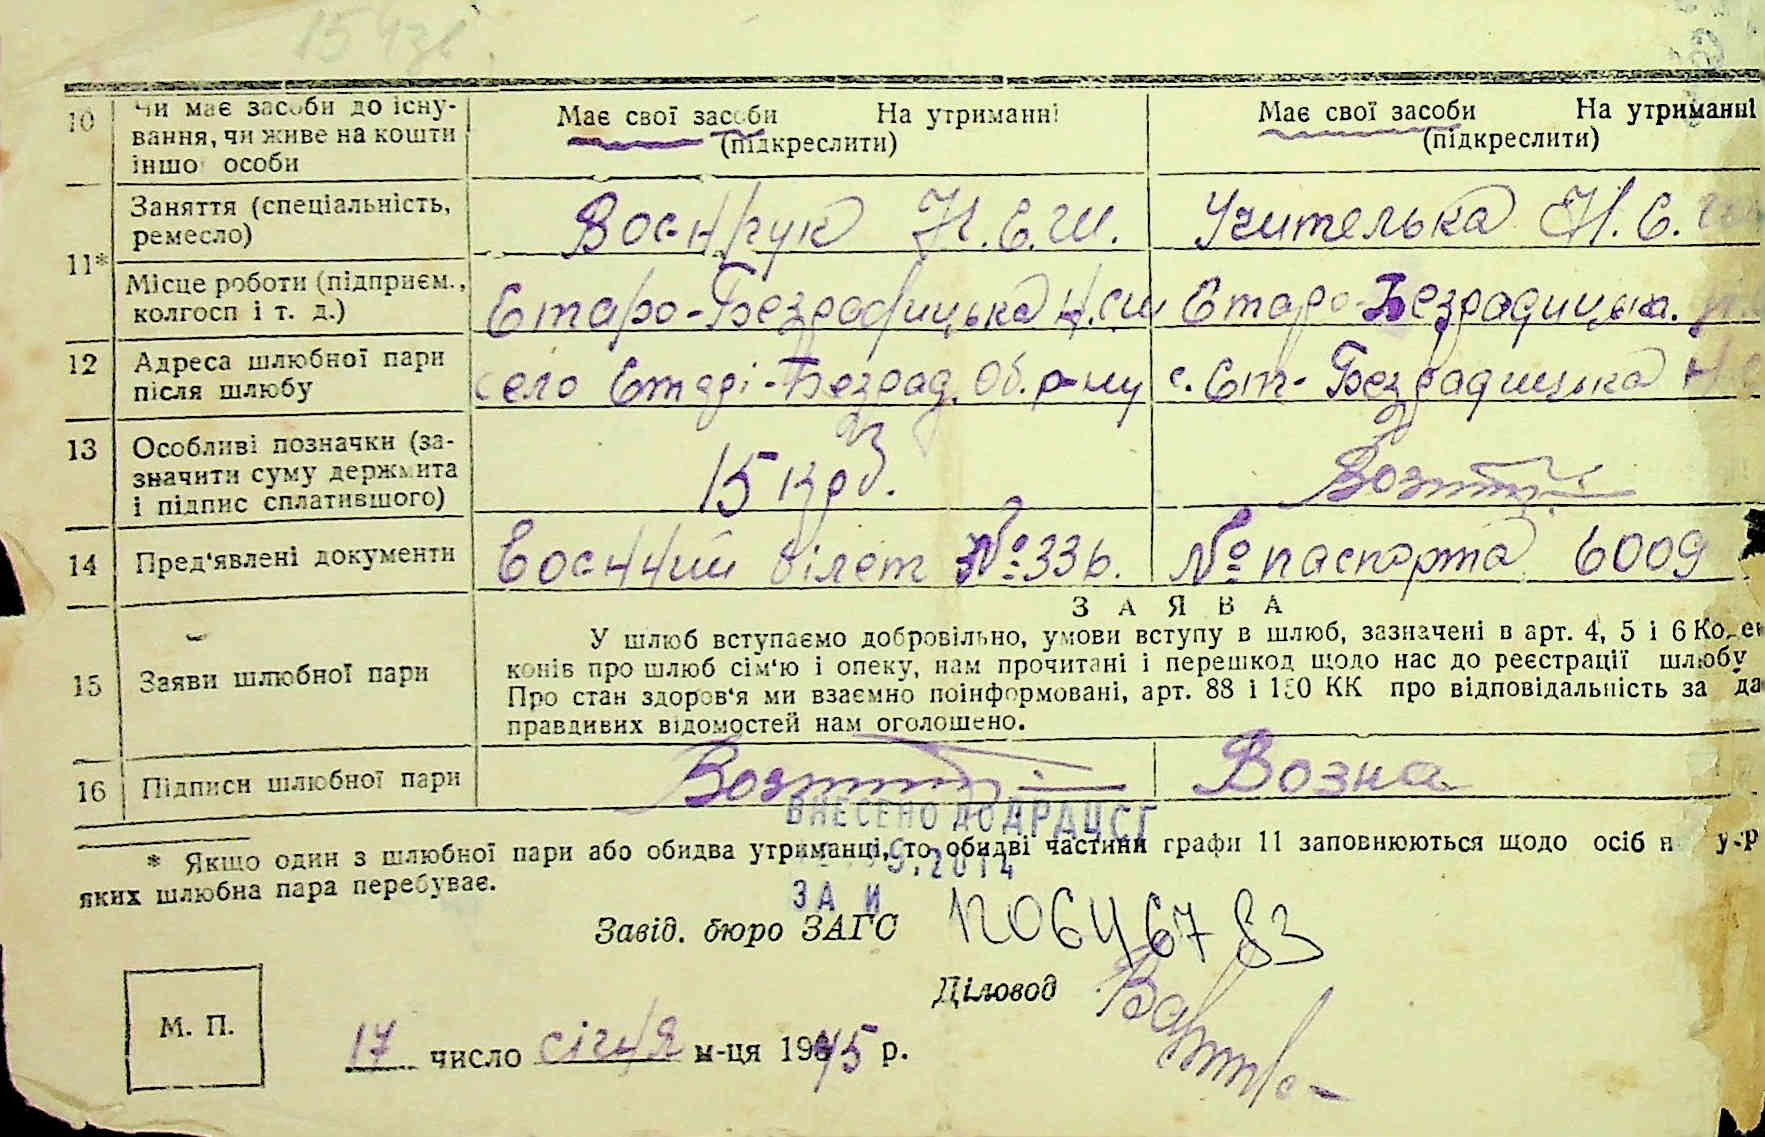 15
10 Чи має засоби до існу-
вання, чи живе на кошти
іншо особи
Має свої засоби На утриманні
(підкреслити)
Має свої засоби На утриманні
(підкреслити)
11* Заняття (спеціальність,
ремесло)
Воєнрук Н.С.Ш.
Учителька Н.С.
Місце роботи (підприєм.,
колгосп і т. д.)
Старо-Безрадицька Н.СШ
Старо-Безрадицька.
12 Адреса шлюбної пари
після шлюбу
село Старі-Безрад. Об. р-ну
с. Ст-Безрадицька Н
13 Особливі позначки (за-
значити суму держмита
і підпис сплатившого)
15 крб.
14 Пред'явлені документи
Воєнний білет №336.
№ паспорта 6009
15 Заяви шлюбної пари
ЗАЯВА
У шлюб вступаємо добровільно, умови вступу в шлюб, зазначені в арт. 4, 5 і 6 Кодек
конів про шлюб сім'ю і опеку, нам прочитані і перешкод щодо нас до реєстрації шлюбу
Про стан здоров'я ми взаємно поінформовані, арт. 88 і 180 КК про відповідальність за да
правдивих відомостей нам оголошено.
16 Підписи шлюбної пари
Возна
ВНЕСЕНО ДО ДРАЦСГ
9.2014
ЗА И
* Якщо один з шлюбної пари або обидва утриманці, то обидві частини графи 11 заповнюються щодо осіб н утр
яких шлюбна пара перебуває.
Завід. бюро ЗАГС
120646783
Діловод
М. П.
17 число січня м-ця 1945 р.